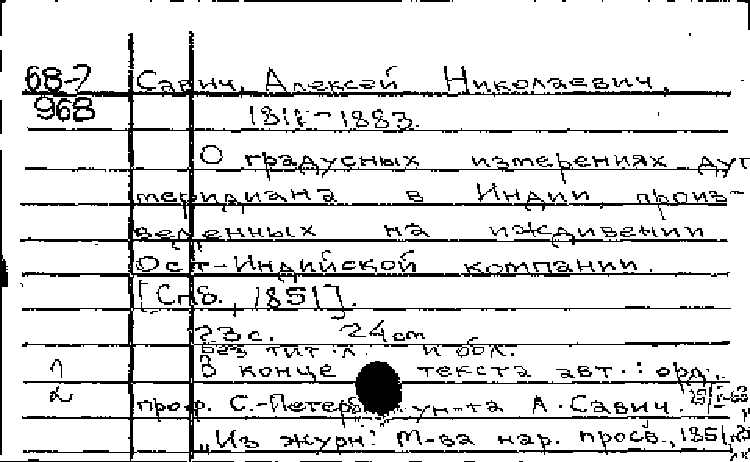 68-7
968
Савич, Алексей Николаевич,
1811-1883.
О градусных измерениях дуг
меридиана в Индии, произ-
веденных на иждивении
Ост-Индийской компании.
[Спб., 1851].
23 с. 24 cm
Без тит. л. и обл.
В конце текста авт.: орд.
проф. С.-Петерб. ун-та А. Савич.
"Из журн. М-ва нар. просв., 1851,